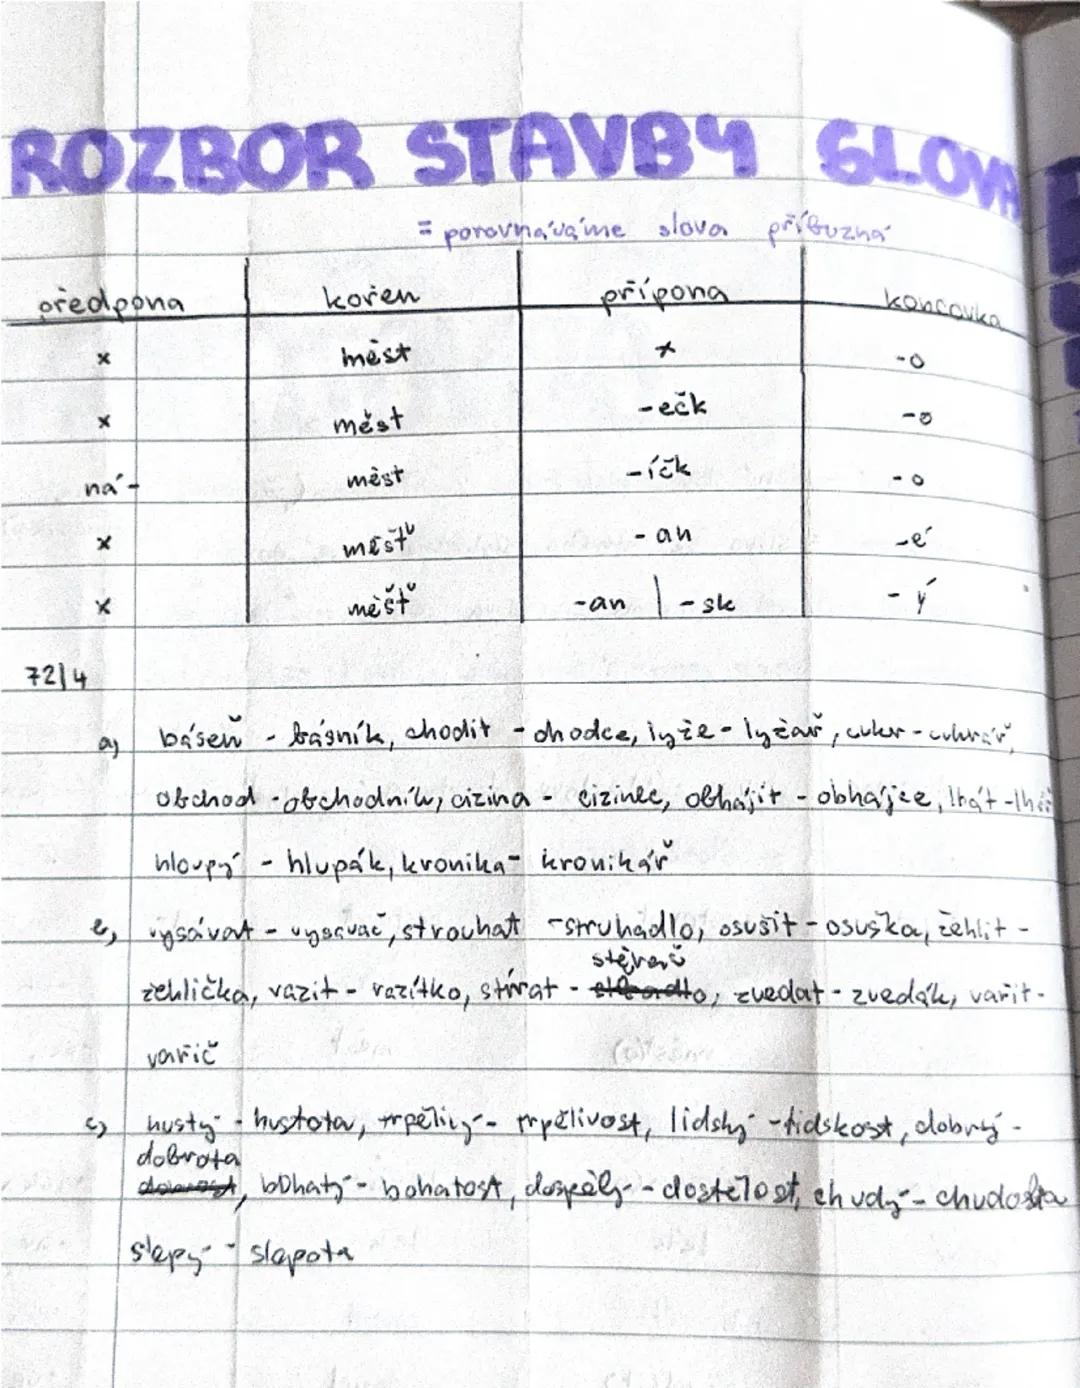 ROZBOR STAVBY SLOVA
= porovnáváme slova příbuzná
předpona kořen přípona koncovka
x měst x -o
x měst -ečk -o
ná- měst -íčk -o
x měšť -an -é
x měšť -an | -sk -ý
72/4
a) báseň - básník, chodit - chodce, lyže - lyžař, cukr - cukrář,
obchod - obchodník, cizina - cizinec, obhájit - obhájce, lhát - lhář
hloupý - hlupák, kronika - kronikář
b) vysávat - vysavač, strouhat - struhadlo, osušit - osuška, žehlit -
stěrač
žehlička, razit - razítko, stírat - , zvedat - zvedák, vařit -
vařič
c) hustý - hustota, trpělivý - trpělivost, lidský - lidskost, dobrý -
dobrota
, bohatý - bohatost, dospělý - dospělost, chudý - chudosta
slepý - slepota